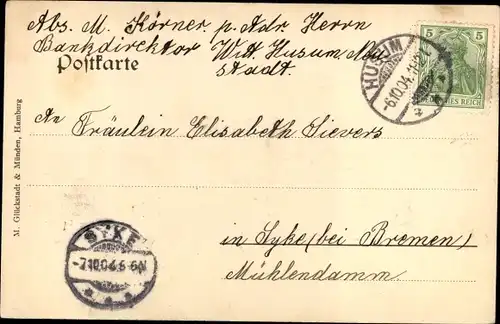 Abs. M. Körner. p. Adr. Herrn
Bankdirektor Witt. Husum, Neu
stadt.
Postkarte
An Fräulein Elisabeth Sievers
in Syke (bei Bremen)
Mühlendamm.
M. Glückstadt & Münden, Hamburg
HUSUM
-6.10.04.
5 5
DEUTSCHES REICH
SYKE
-7.10.04.5-6N